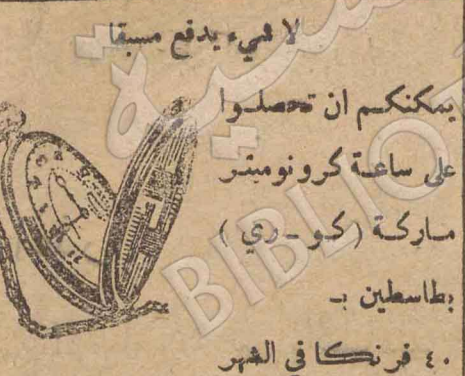 لا شيء يدفع مسبقا
يمكنكم ان تحصلوا
على ساعة كرونوميتر
ماركة (كو-ري)
بطاسطين بـ
٤٠ فرنكا في الشهر
BIBLIO